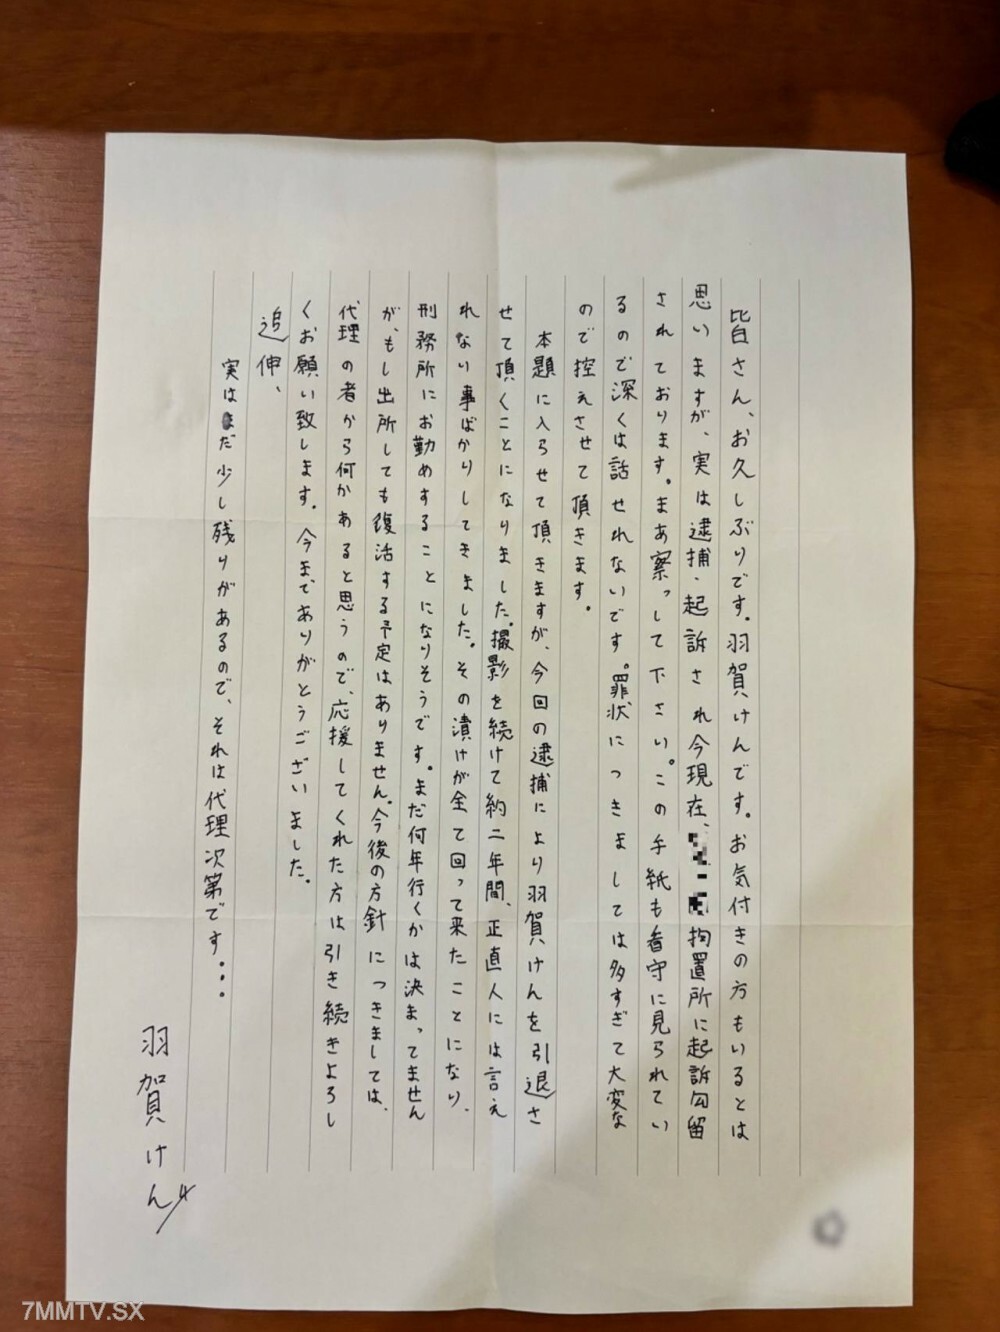 皆さん、お久しぶりです。羽賀けんです。お気付きの方もいるとは
思いますが、実は逮捕・起訴され今現在、拘置所に起訴勾留
されております。まあ察っして下さい。この手紙も看守に見られてい
るので深くは話せれないです。罪状につきましては多すぎて大変な
ので控えさせて頂きます。
本題に入らせて頂きますが、今回の逮捕により羽賀けんを引退さ
せて頂くことになりました。撮影を続けて約二年間、正直人には言え
れない事ばかりしてきました。その漬けが全て回って来たことになり、
刑務所にお勤めすることになりそうです。まだ何年行くかは決まってません
が、もし出所しても復活する予定はありません。今後の方針につきましては、
代理の者から何かあると思うので、応援してくれた方は引き続きよろし
くお願い致します。今まで、ありがとうございました。
追伸、
実はまだ少し残りがあるので、それは代理次第です...
羽賀けん
7MMTV.SX